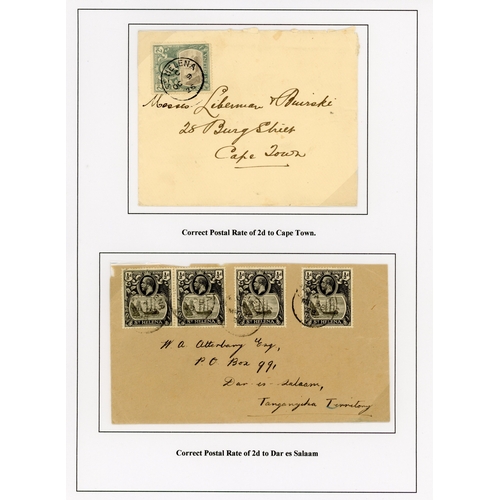 ST HELENA
Messrs. Liberman & Buirski
28 Burg Street
Cape Town
Correct Postal Rate of 2d to Cape Town.
ST HELENA ST HELENA ST HELENA ST HELENA
W A Atterbury Esq,
P.O. Box 991,
Dar-es-salaam,
Tanganyika Territory
Correct Postal Rate of 2d to Dar es Salaam